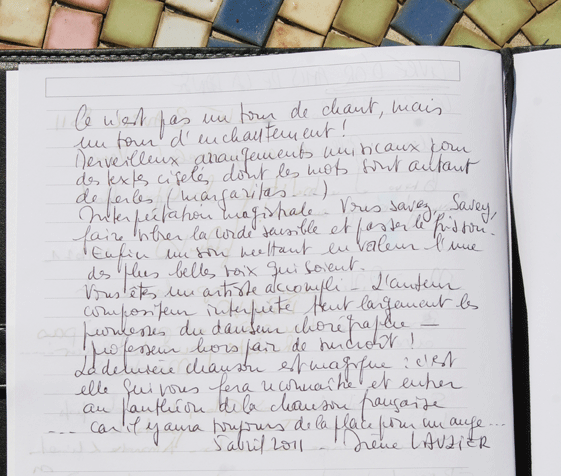 Ce n'est pas un tour de chant, mais
un tour d'enchantement !
Merveilleux arrangements musicaux pour
des textes ciselés dont les mots sont autant
de perles (margaritas...)
Interprétation magistrale. Vous savez, Savez,
faire vibrer la corde sensible et passer le frisson.
Enfin un son mettant en valeur l'une
des plus belles voix qui soient.
Vous êtes un artiste accompli - L'auteur
compositeur interprète tient largement les
promesses du danseur chorégraphe -
professeur hors pair de surcroît !
La dernière chanson est magique : c'est
elle qui vous fera reconnaître et entrer
au panthéon de la chanson française
.... car il y aura toujours de la place pour un ange...
5 avril 2011 - Irène